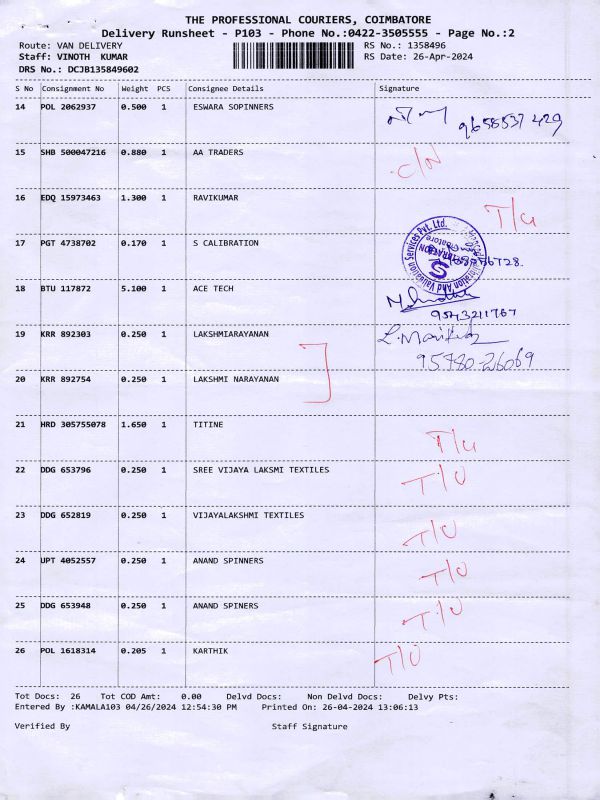 THE PROFESSIONAL COURIERS, COIMBATORE
Delivery Runsheet - P103 - Phone No.:0422-3505555 - Page No.:2
Route: VAN DELIVERY RS No.: 1358496
Staff: VINOTH KUMAR RS Date: 26-Apr-2024
DRS No.: DCJB135849602
S No Consignment No Weight PCS Consignee Details Signature
14 POL 2062937 0.500 1 ESWARA SOPINNERS
9658537 429
15 SHB 500047216 0.880 1 AA TRADERS C/N
16 EDQ 15973463 1.300 1 RAVIKUMAR T/U
17 PGT 4738702 0.170 1 S CALIBRATION
18 BTU 117872 5.100 1 ACE TECH
9543211767
19 KRR 892303 0.250 1 LAKSHMIARAYANAN
95780-26069
20 KRR 892754 0.250 1 LAKSHMI NARAYANAN
21 HRD 305755078 1.650 1 TITINE T/U
22 DDG 653796 0.250 1 SREE VIJAYA LAKSMI TEXTILES T/U
23 DDG 652819 0.250 1 VIJAYALAKSHMI TEXTILES T/U
24 UPT 4052557 0.250 1 ANAND SPINNERS T/U
25 DDG 653948 0.250 1 ANAND SPINERS T/U
26 POL 1618314 0.205 1 KARTHIK T/U
Tot Docs: 26 Tot COD Amt: 0.00 Delvd Docs: Non Delvd Docs: Delvy Pts:
Entered By :KAMALA103 04/26/2024 12:54:30 PM Printed On: 26-04-2024 13:06:13
Verified By Staff Signature